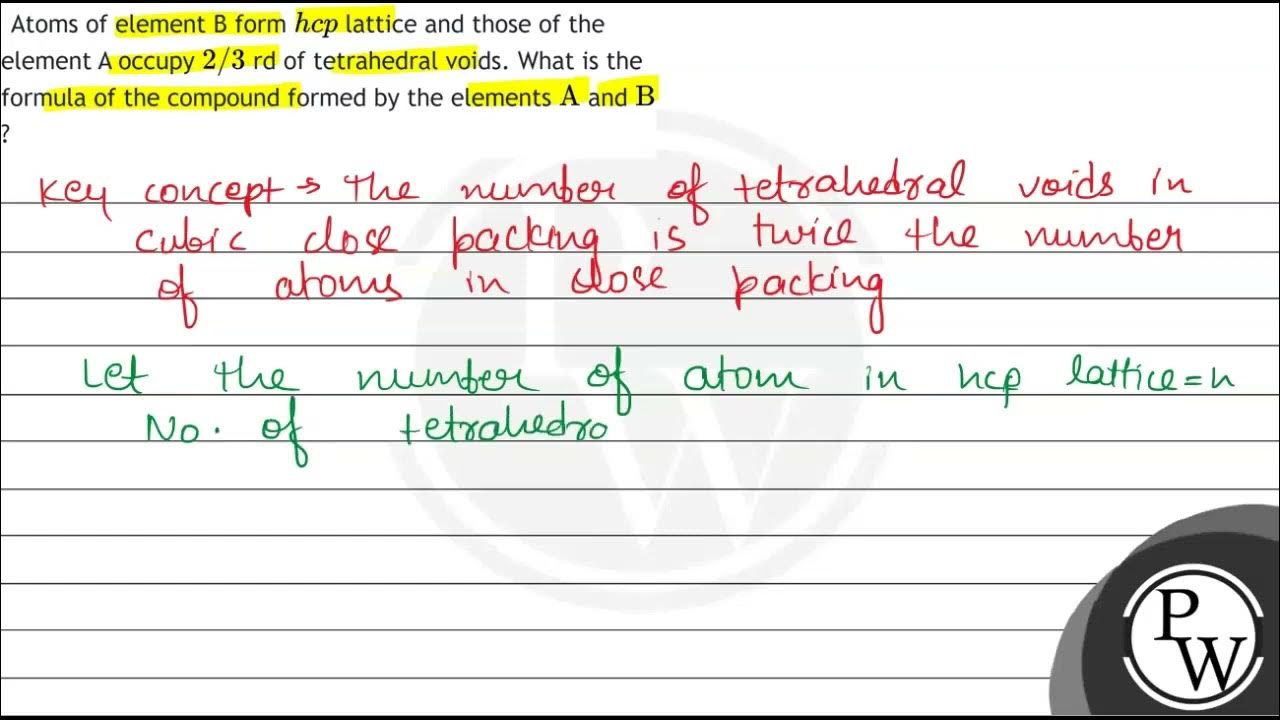 Atoms of element B form hcp lattice and those of the
element A occupy 2/3 rd of tetrahedral voids. What is the
formula of the compound formed by the elements A and B
?
Key concept → The number of tetrahedral voids in
cubic close packing is twice the number
of atoms in close packing
Let the number of atom in hcp lattice = n
No. of tetrahedro
PW
PW